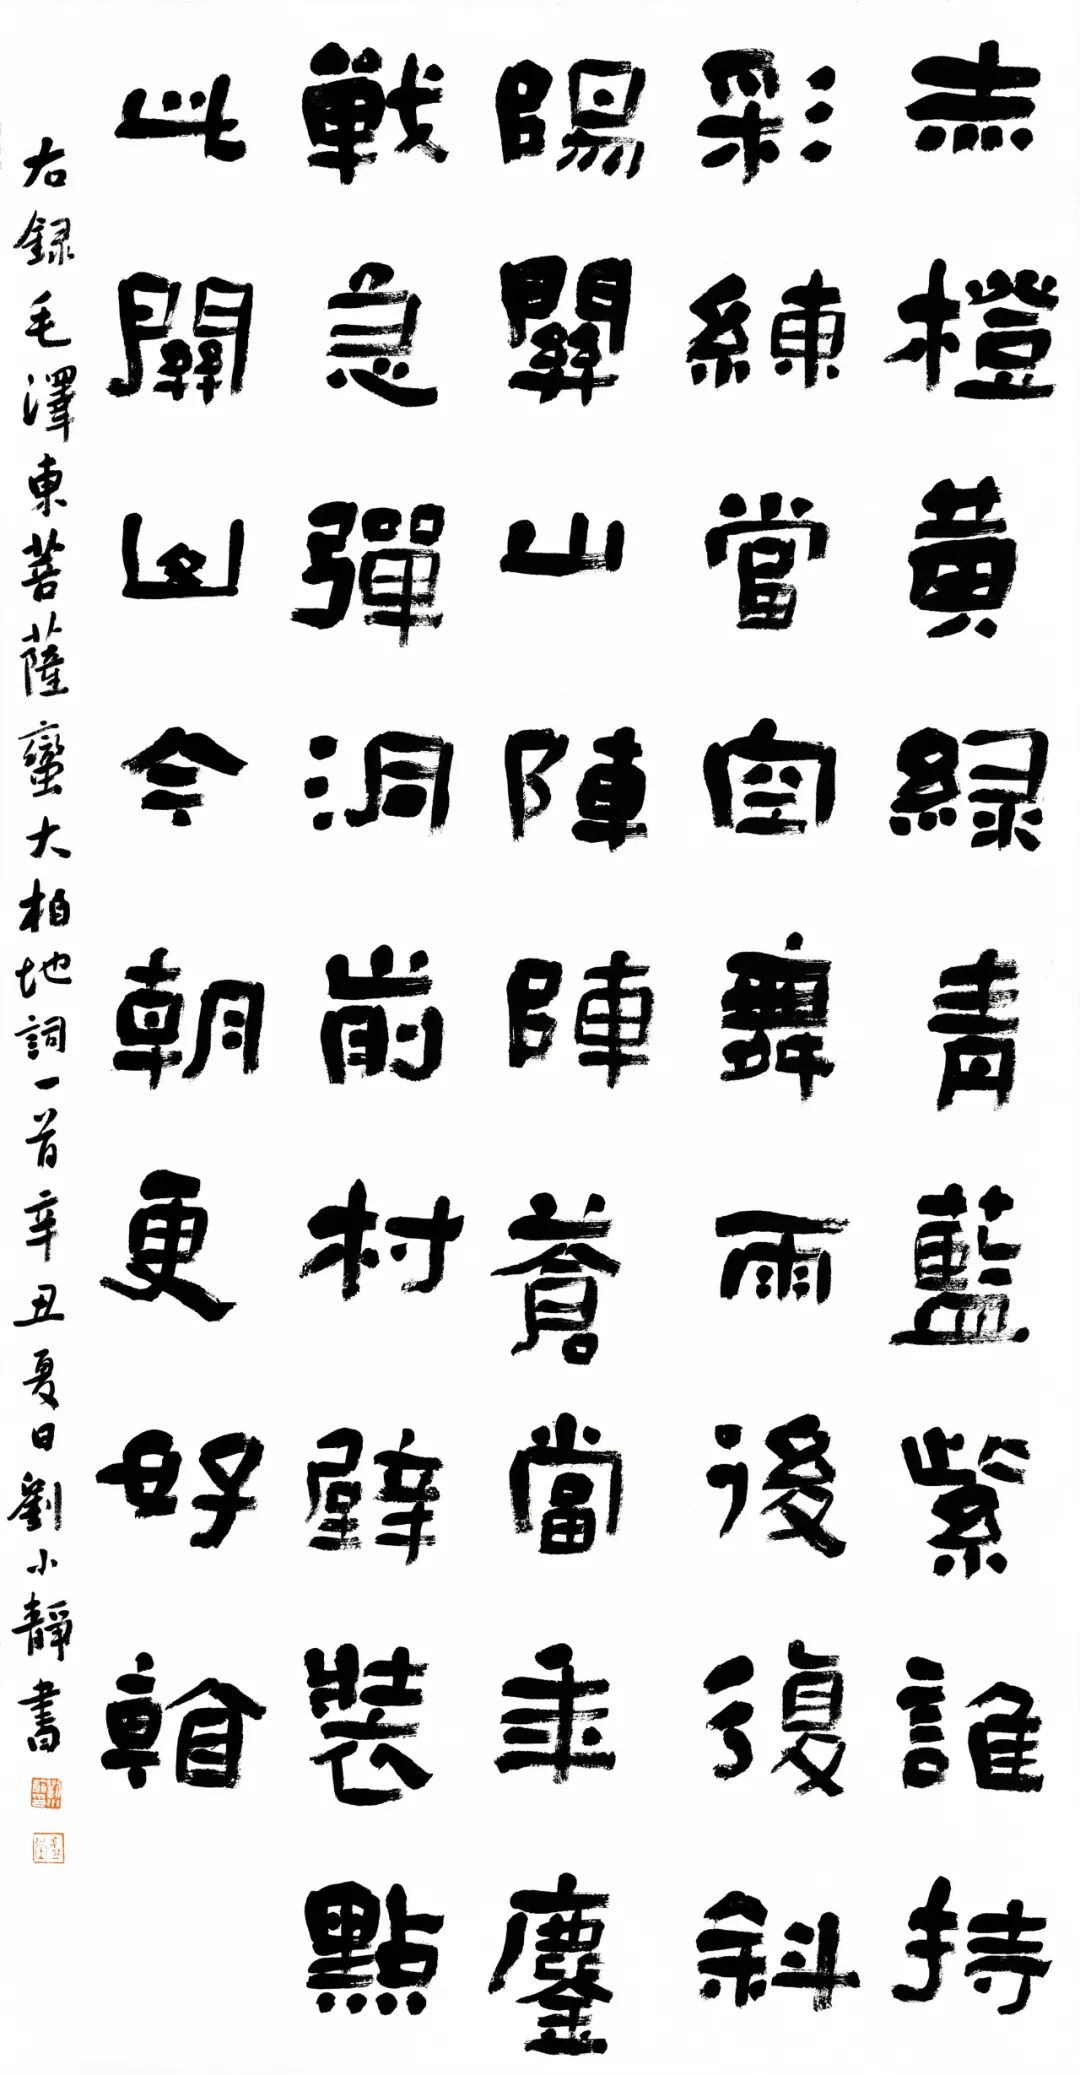 赤橙黃綠青藍紫誰持
彩練當空舞雨後復斜
陽關山陣陣蒼當年鏖
戰急彈洞前村壁裝點
此關山今朝更好看
右録毛澤東菩薩蠻大柏地詞一首辛丑夏日劉小靜書